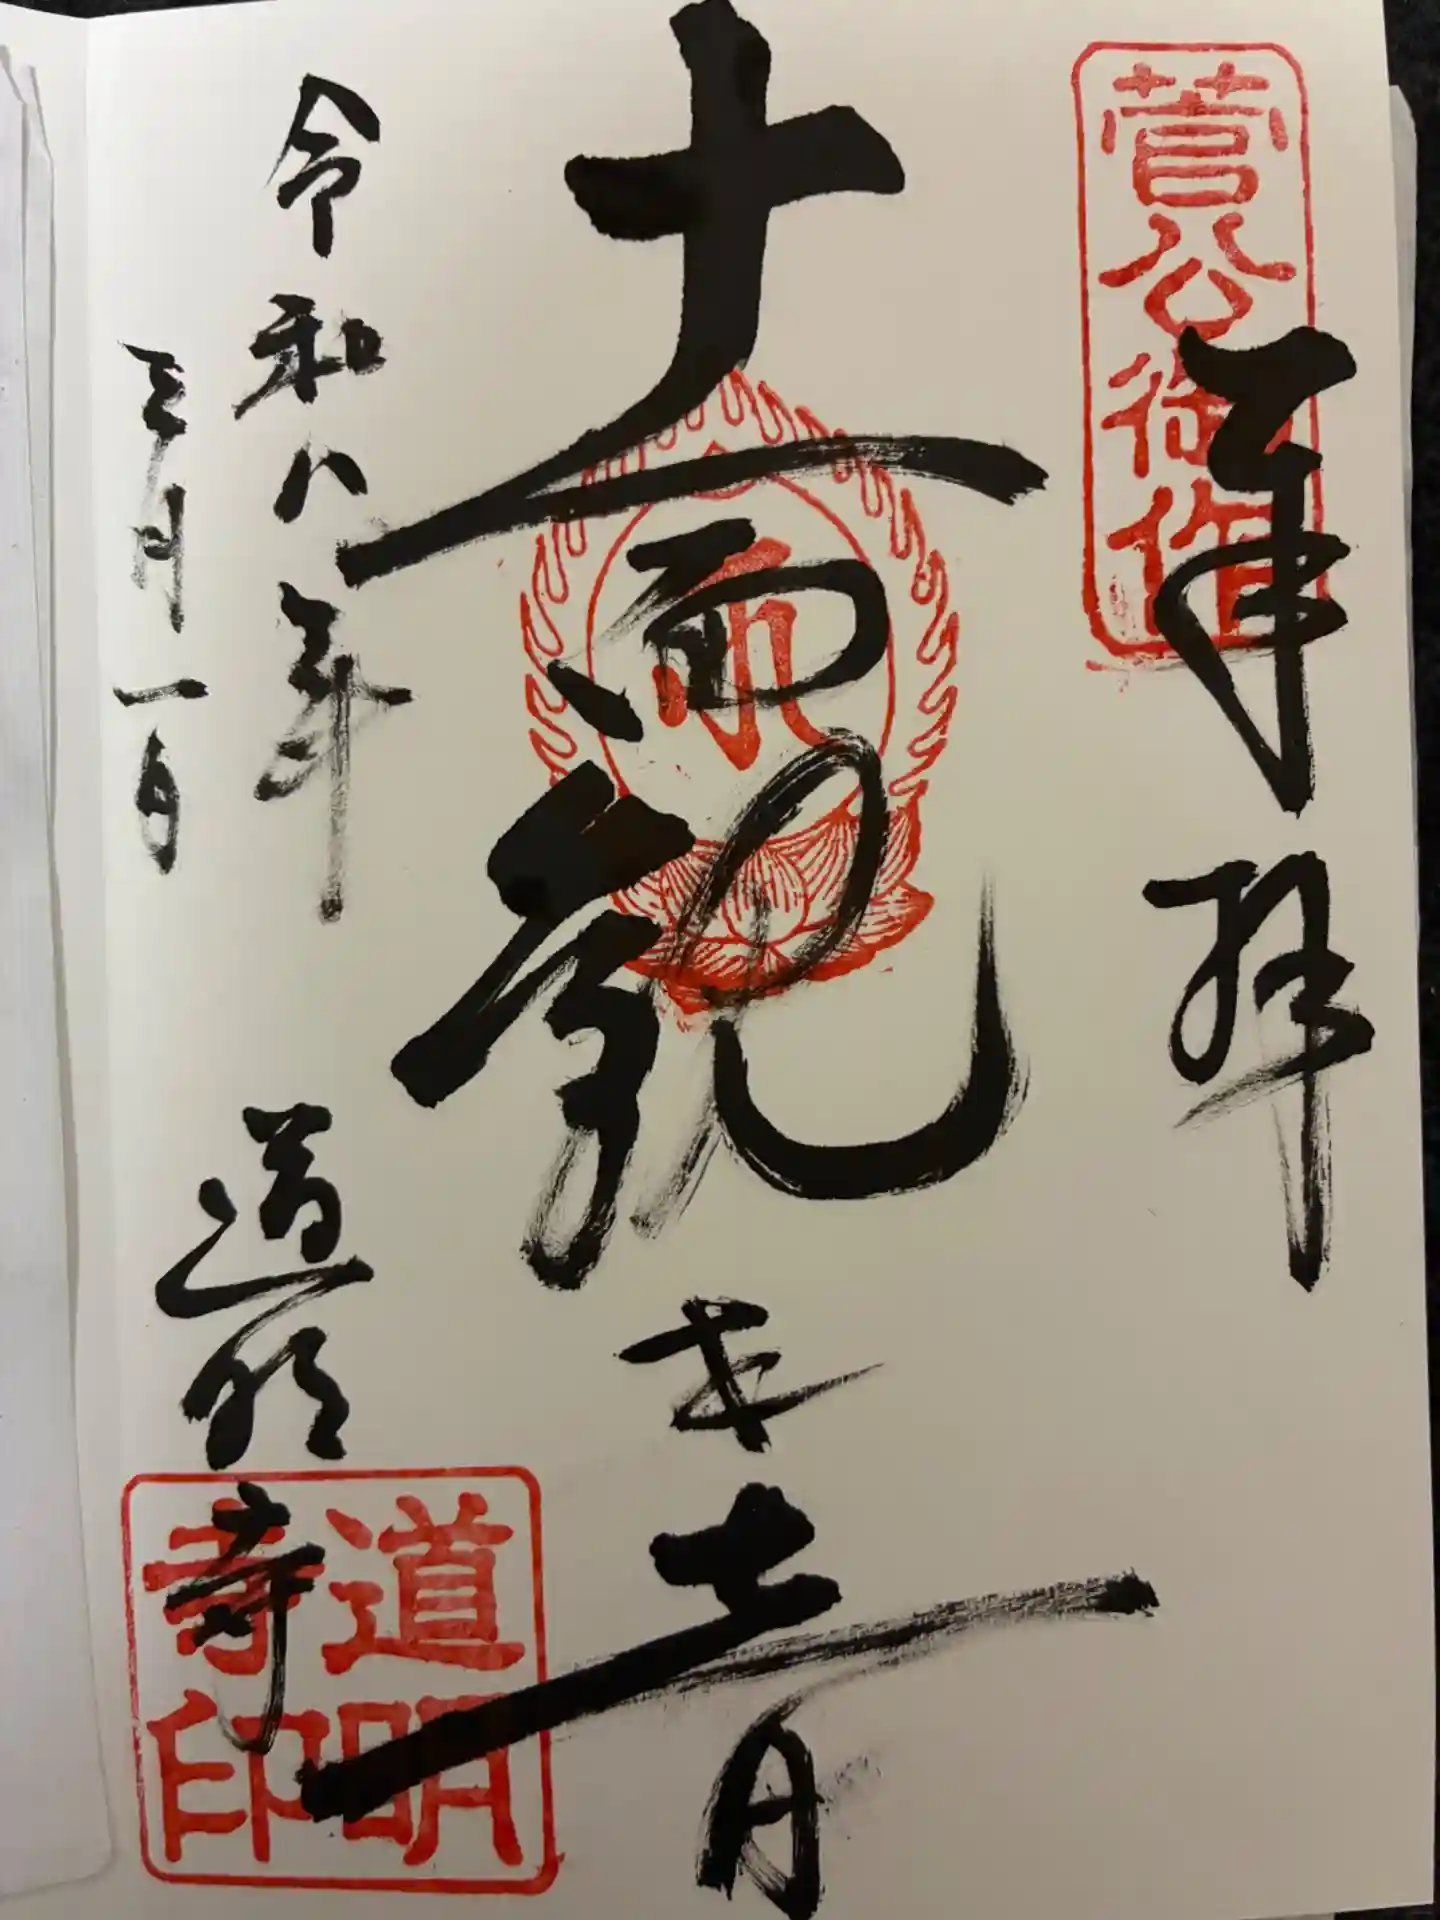 菅公御作
奉拝
十一面観世音
令和八年
三月一日
道明寺
道明寺印